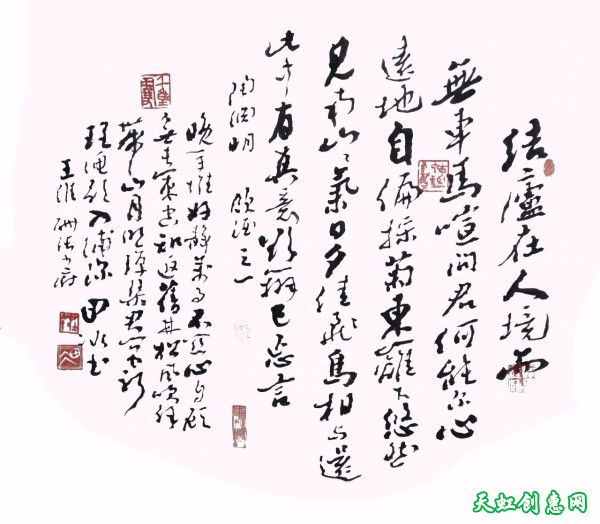 结廬在人境而
無車馬喧问君何能尔心
遠地自偏採菊東籬下悠然
見南山〻氣日夕佳飛鳥相与還
此中有真意欲辨已忘言
陶渊明 饮酒之一
晚年惟好静万事不关心自顾
无长策空知返舊林松风吹解
带山月照弹琴君
理渔歌入浦深 田水书
王维 酬张少府
天虹创意网